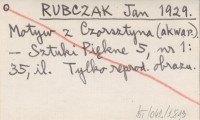 RUBCZAK Jan 1929.
Motyw z Czorsztyna (akwar.)
-- Sztuki Piękne 5, nr 1:
35, il. Tylko reprod. obrazu.